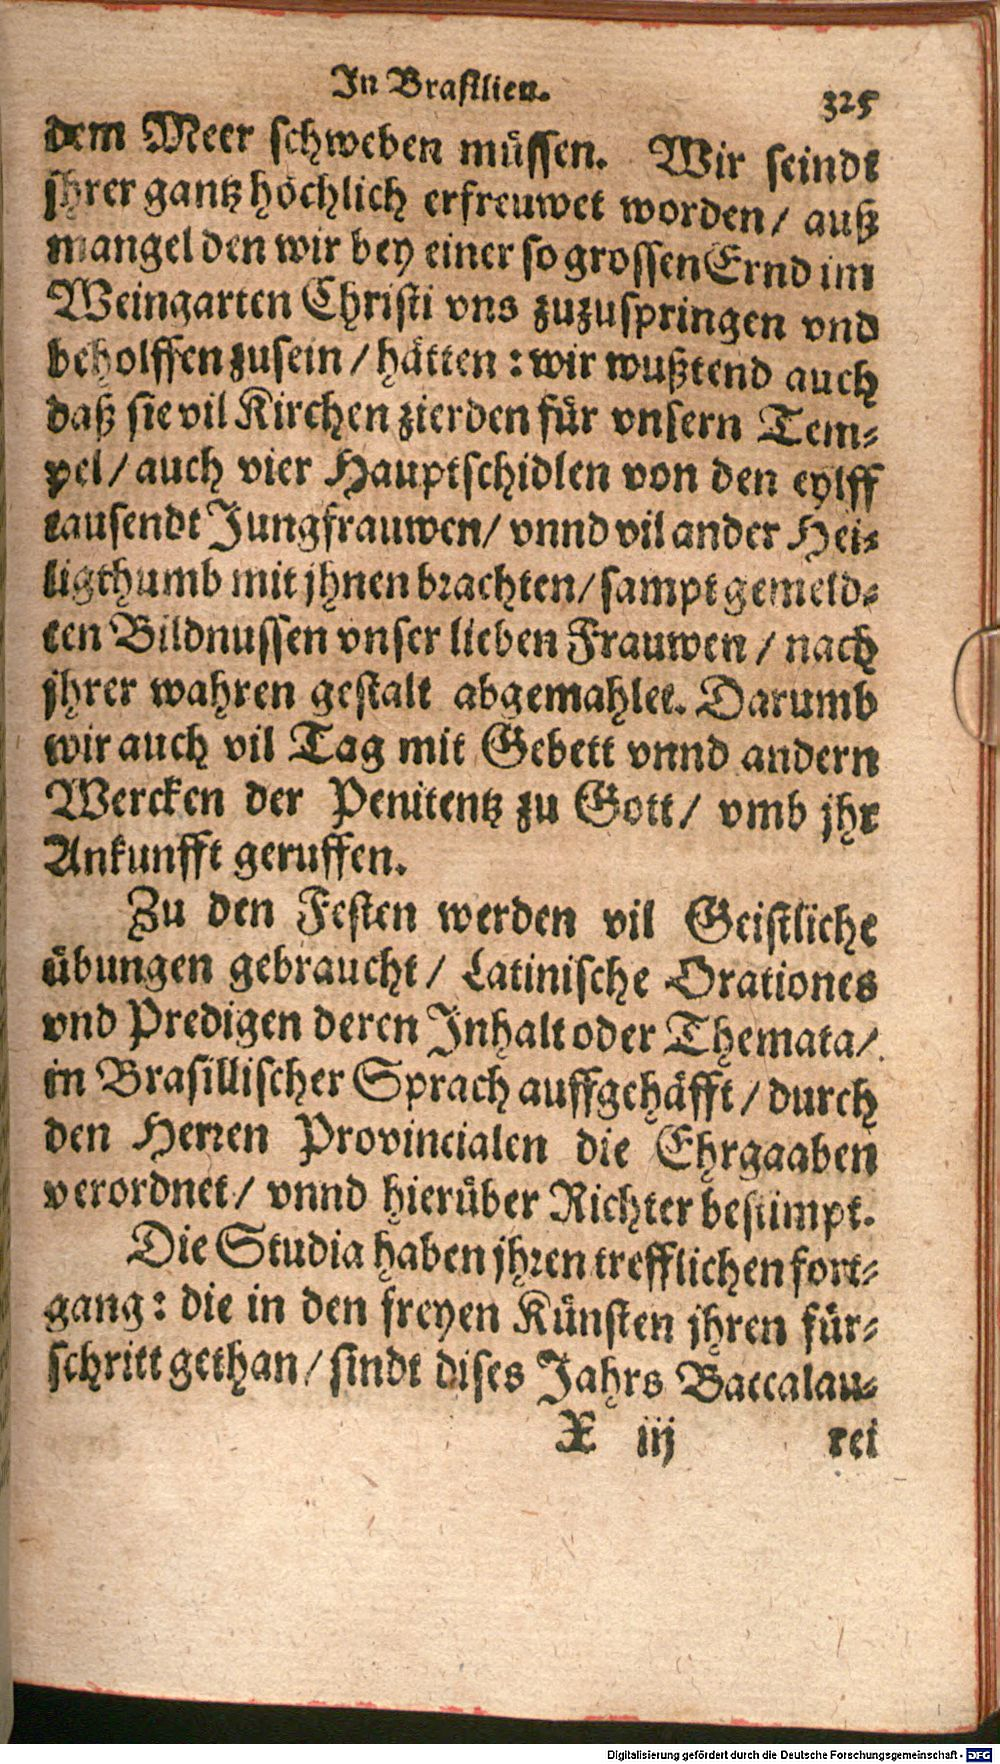 In Brasilien.
325
dem Meer schweben müssen. Wir seindt
jhrer gantz höchlich erfreuwet worden/ auß
mangel den wir bey einer so grossen Ernd im
Weingarten Christi vns zuzuspringen vnd
beholffen zusein / hätten : wir wußtend auch
daß sie vil Kirchen zierden für vnsern Tem-
pel/ auch vier Hauptschidlen von den eylff
tausendt Jungfrauwen/ vnnd vil ander Hei-
ligthumb mit jhnen brachten/ sampt gemeld-
ten Bildnussen vnser lieben Frauwen / nach
jhrer wahren gestalt abgemahlet. Darumb
wir auch vil Tag mit Gebett vnnd andern
Wercken der Penitentz zu Gott/ vmb jhr
Ankunfft geruffen.
Zu den Festen werden vil Geistliche
übungen gebraucht/ Latinische Orationes
vnd Predigen deren Inhalt oder Themata/
in Brasillischer Sprach auffgehäfft / durch
den Herren Provincialen die Ehrgaaben
verordnet/ vnnd hierüber Richter bestimpt.
Die Studia haben jhren trefflichen fort-
gang: die in den freyen Künsten jhren für-
schritt gethan/ sindt dises Jahrs Baccalau-
X iij rei
Digitalisierung gefördert durch die Deutsche Forschungsgemeinschaft - DFG